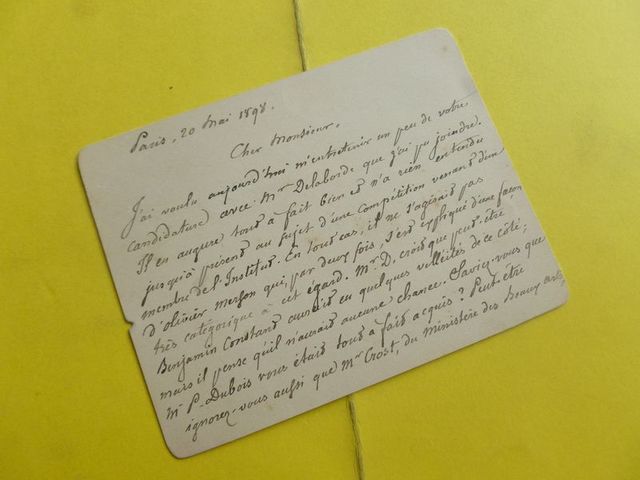 Paris, 20 Mai 1898.
Cher Monsieur,
J'ai voulu aujourd'hui m'entretenir un peu de votre
candidature avec Mr Delaborde que j'ai pu joindre.
Il en augure tout à fait bien et n'a rien entendu
jusqu'à présent au sujet d'une compétition venant d'un
membre de l'Institut. En tout cas, il ne s'agirait pas
d'olivier-merson qui, par deux fois, s'est expliqué d'une façon
très catégorique à cet égard. Mr. D. croit que peut-être,
Benjamin Constant aurait eu quelques velléités de ce côté;
mais il pense qu'il n'aurait aucune chance. Saviez-vous que
Mr P. Dubois vous était tout à fait acquis? Peut-être
ignorez-vous aussi que Mr Crost, du ministère des Beaux arts,